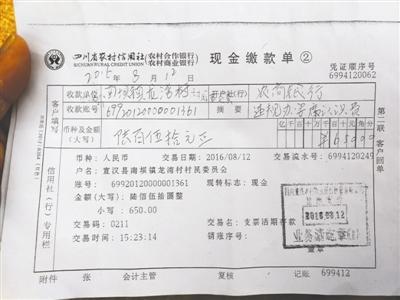 四川省农村信用社(农村合作银行)(农村商业银行) 现金缴款单②
SICHUAN RURAL CREDIT UNION
凭证顺序号
6994120062
2015 8 12
收款单位 南坝镇龙湾村 开户社(行) 农商银行
收款账号 699201200000001361 摘要
币种及金额(大写) 陆佰伍拾元正
亿千百十万千百十元角分
¥65000
客户填写
第二联 客户回单
信用社(行)专用栏
币种：人民币 交易日期：2016/08/12 交易流水号：6994120249
户名：宣汉县南坝镇龙湾村村民委员会
账号：699201200000001361 现转标志：现金
金额(大写)：陆佰伍拾圆整
小写：650.00
交易码：0211 交易名称：支票活期存款
交易时间：15:23:14 销账序号：
2016.08.12
业务清讫章
附件 张 会计主管 复核 记账 699412